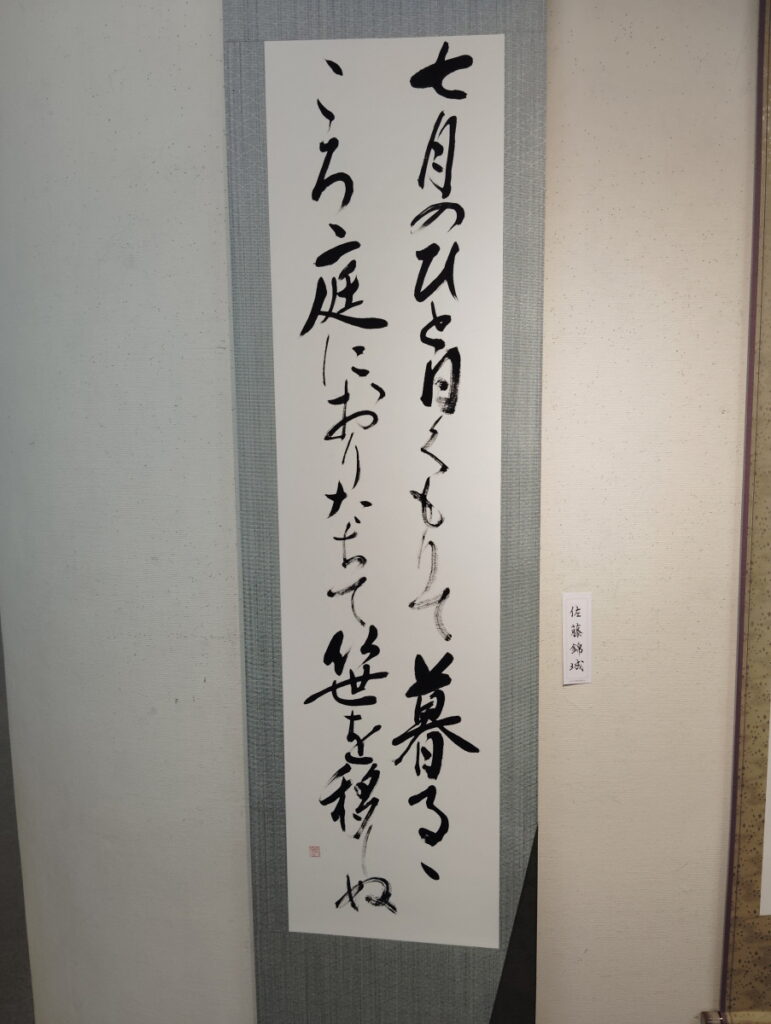 七月のひと日くもりて暮るゝ
ころ庭におりたちて笹を移しぬ
佐藤錦城